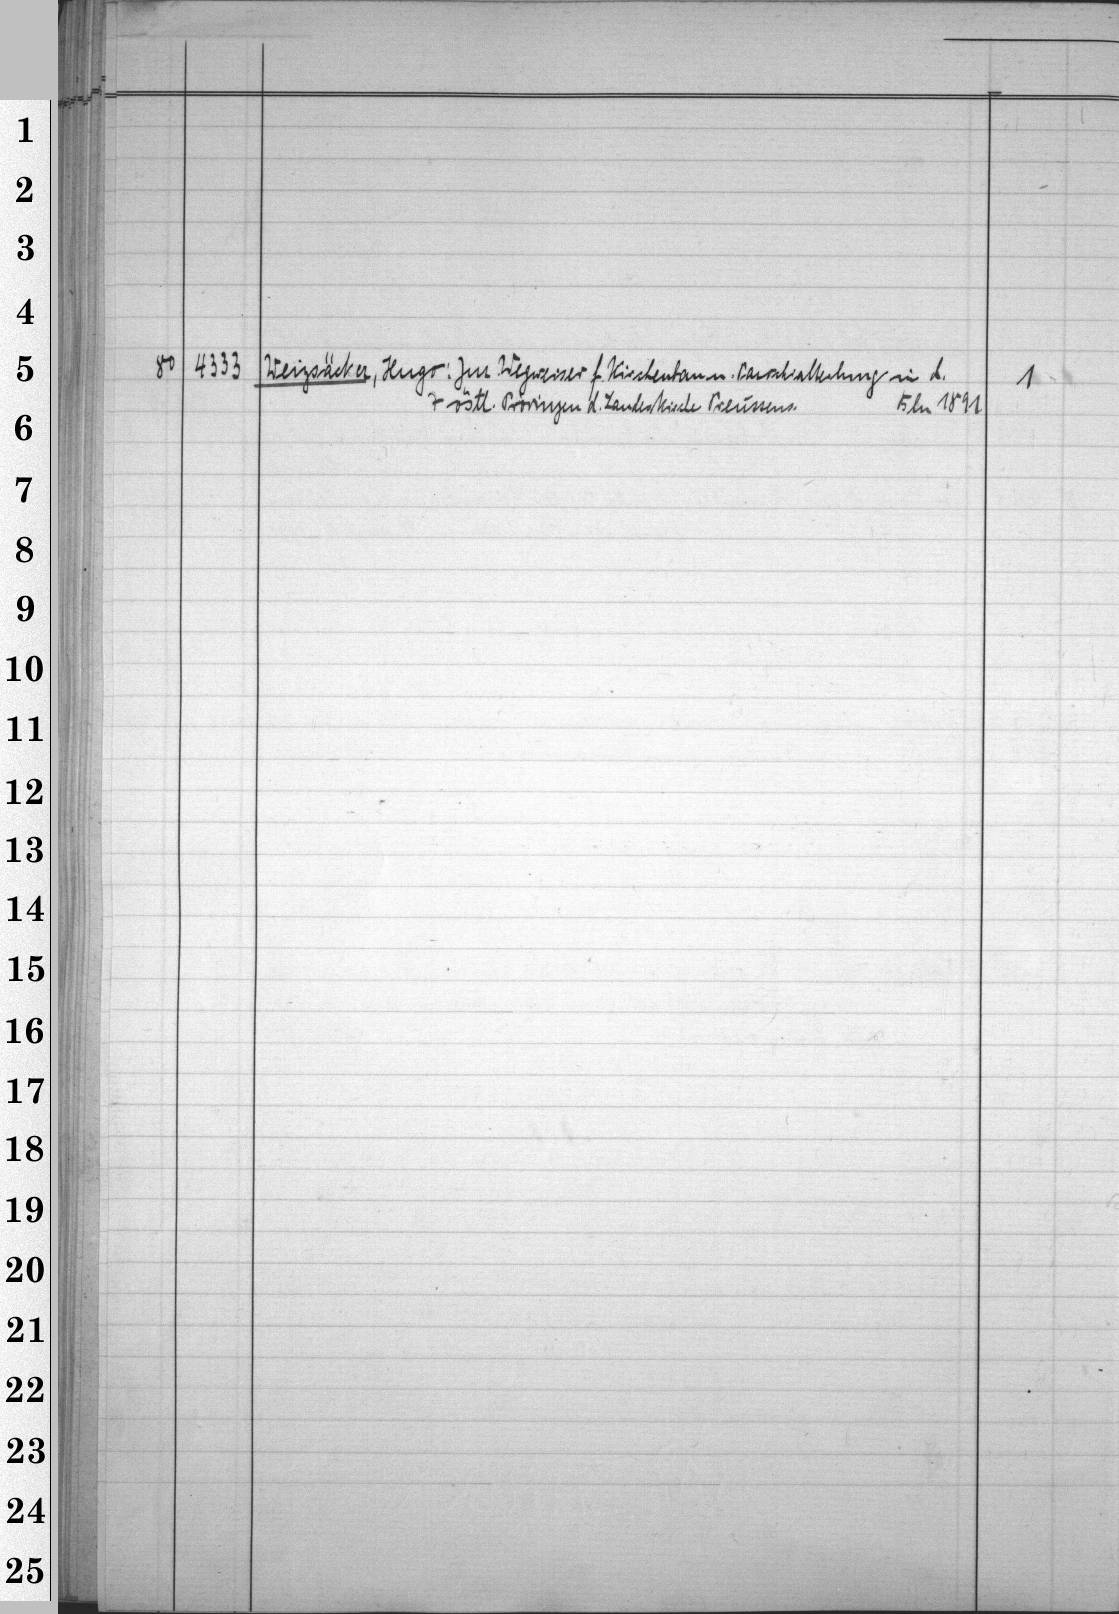 1
2
3
4
5
8° 4333 Weizsäcker, Hugo: Jur. Wegweiser f. Kirchenbau u. Parochialteilung in d. 1
7 östl. Provinzen d. Landeskirche Preussens. Bln 1891
6
7
8
9
10
11
12
13
14
15
16
17
18
19
20
21
22
23
24
25